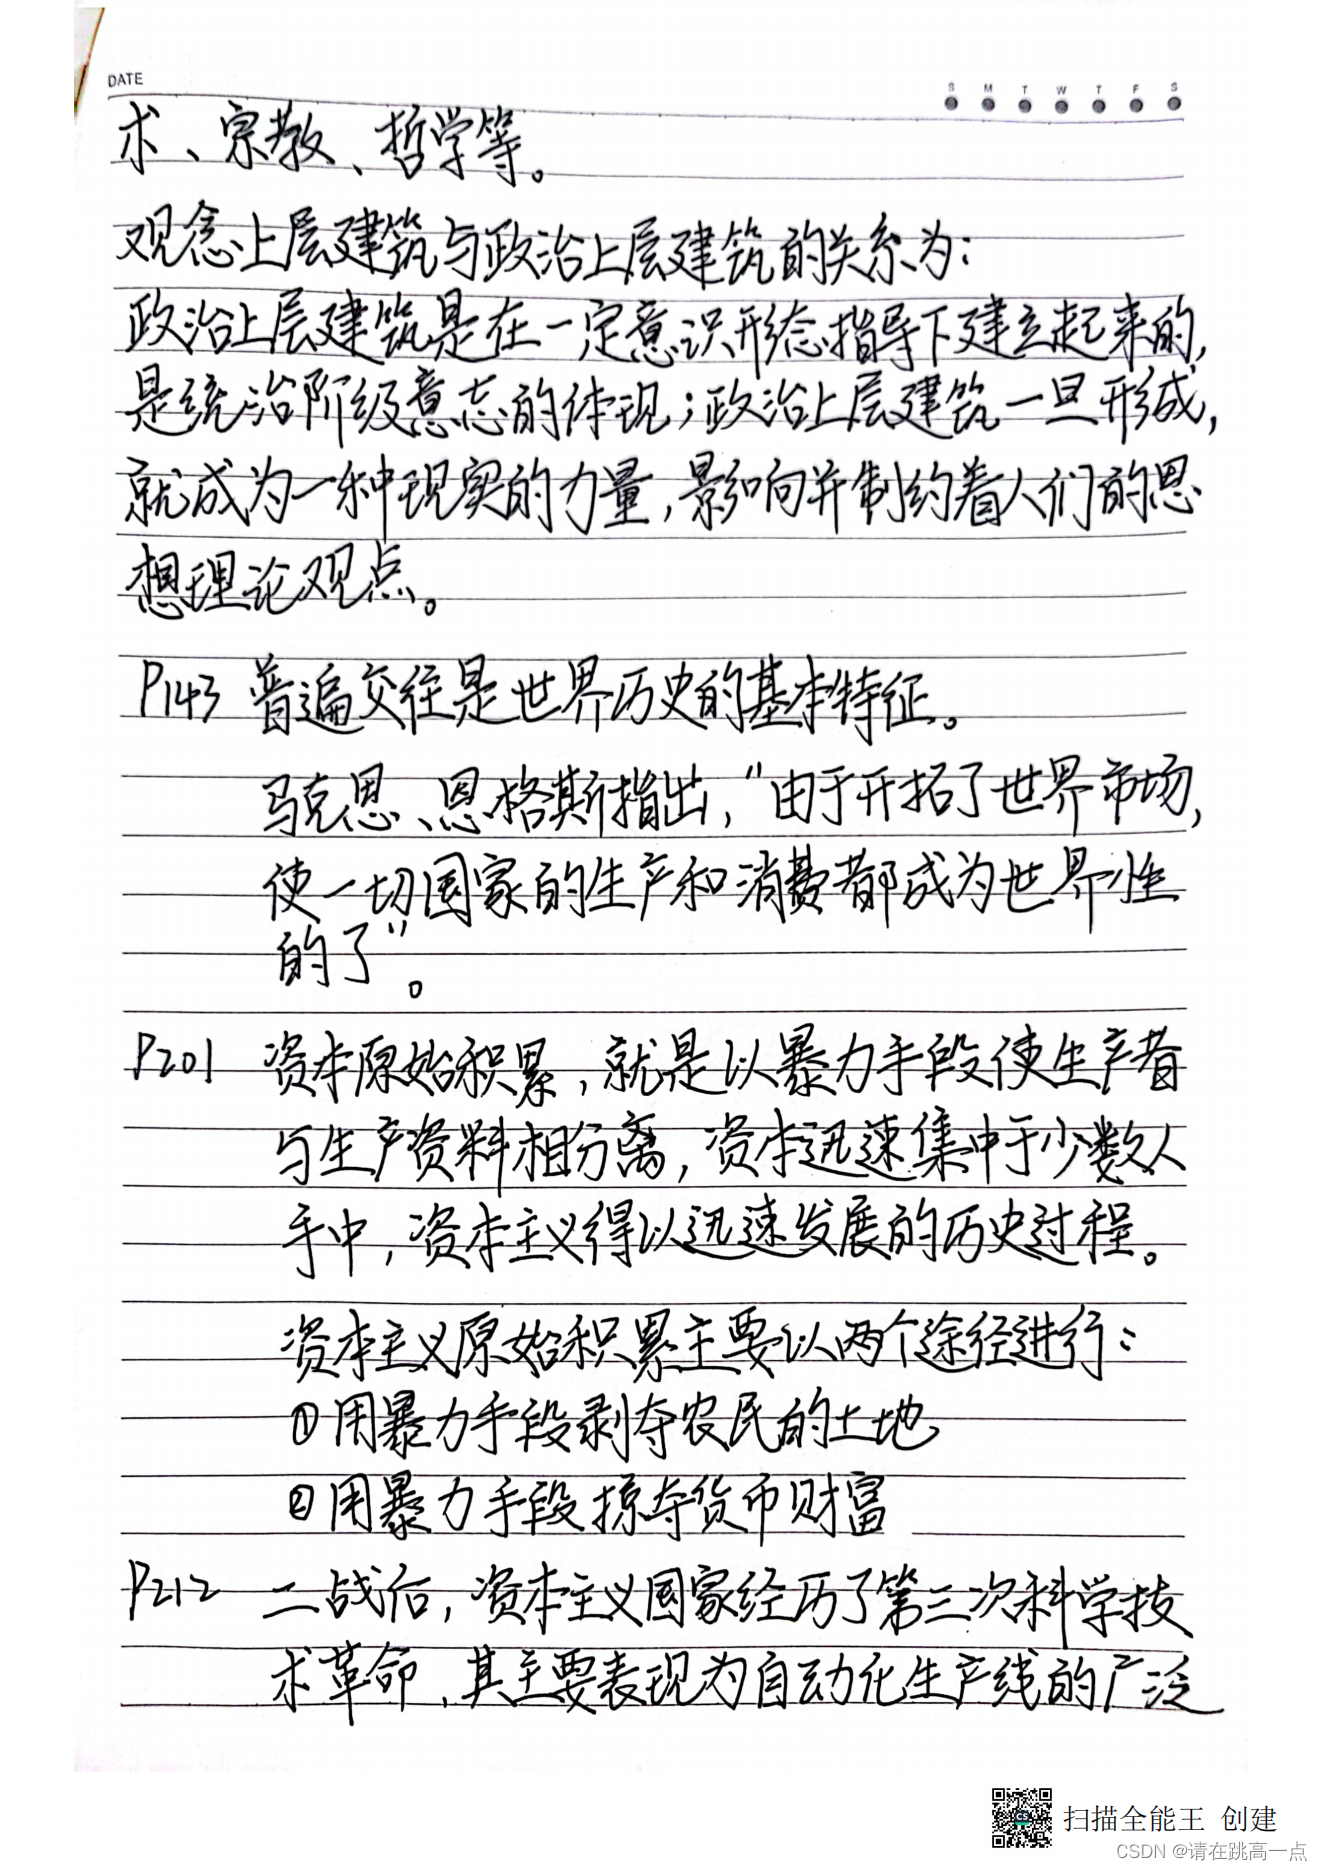 DATE
S M T W T F S
术、宗教、哲学等。
观念上层建筑与政治上层建筑的关系为:
政治上层建筑是在一定意识形态指导下建立起来的,
是统治阶级意志的体现;政治上层建筑一旦形成,
就成为一种现实的力量,影响并制约着人们的思
想理论观点。
P143 普遍交往是世界历史的基本特征。
马克思、恩格斯指出,“由于开拓了世界市场,
使一切国家的生产和消费都成为世界性
的了”。
P201 资本原始积累,就是以暴力手段使生产者
与生产资料相分离,资本迅速集中于少数人
手中,资本主义得以迅速发展的历史过程。
资本主义原始积累主要以两个途径进行:
①用暴力手段剥夺农民的土地
②用暴力手段掠夺货币财富
P212 二战后,资本主义国家经历了第三次科学技
术革命,其主要表现为自动化生产线的广泛
扫描全能王 创建
CSDN @请在跳高一点